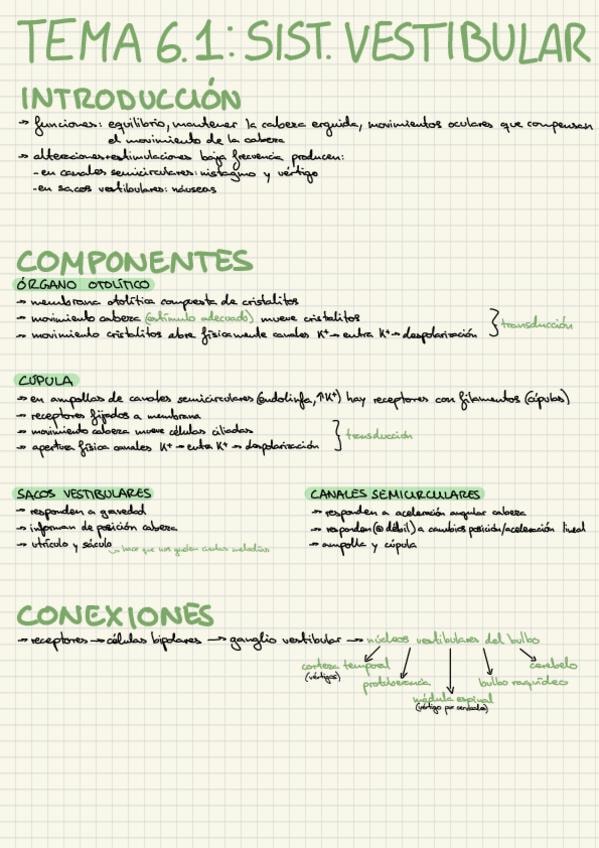 TEMA 6.1: SIST. VESTIBULAR
INTRODUCCIÓN
→ funciones: equilibrio, mantener la cabeza erguida, movimientos oculares que compensan
el movimiento de la cabeza
→ alteraciones→estimulaciones baja frecuencia producen:
-en canales semicirculares: nistagmo y vértigo
-en sacos vestibulares: náuseas
COMPONENTES
ÓRGANO OTOLÍTICO
→ membrana otolítica compuesta de cristalitos
→ movimiento cabeza (estímulo adecuado) mueve cristalitos
→ movimiento cristalitos abre físicamente canales K⁺→ entra K⁺→ despolarización } transducción
CÚPULA
→ en ampollas de canales semicirculares (endolinfa, ↑K⁺) hay receptores con filamentos (cúpulas)
→ receptores fijados a membrana
→ movimiento cabeza mueve células ciliadas
→ apertura física canales K⁺→ entra K⁺ → despolarización } transducción
SACOS VESTIBULARES
→ responden a gravedad
→ informan de posición cabeza
→ utrículo y sáculo → hace que nos gusten ciertas melodías
CANALES SEMICIRCULARES
→ responden a aceleración angular cabeza
→ responden (débil) a cambios posición/aceleración lineal
→ ampolla y cúpula
CONEXIONES
→ receptores → células bipolares → ganglio vestibular → núcleos vestibulares del bulbo
corteza temporal
(vértigos)
protuberancia
médula espinal
bulbo raquídeo
cerebelo